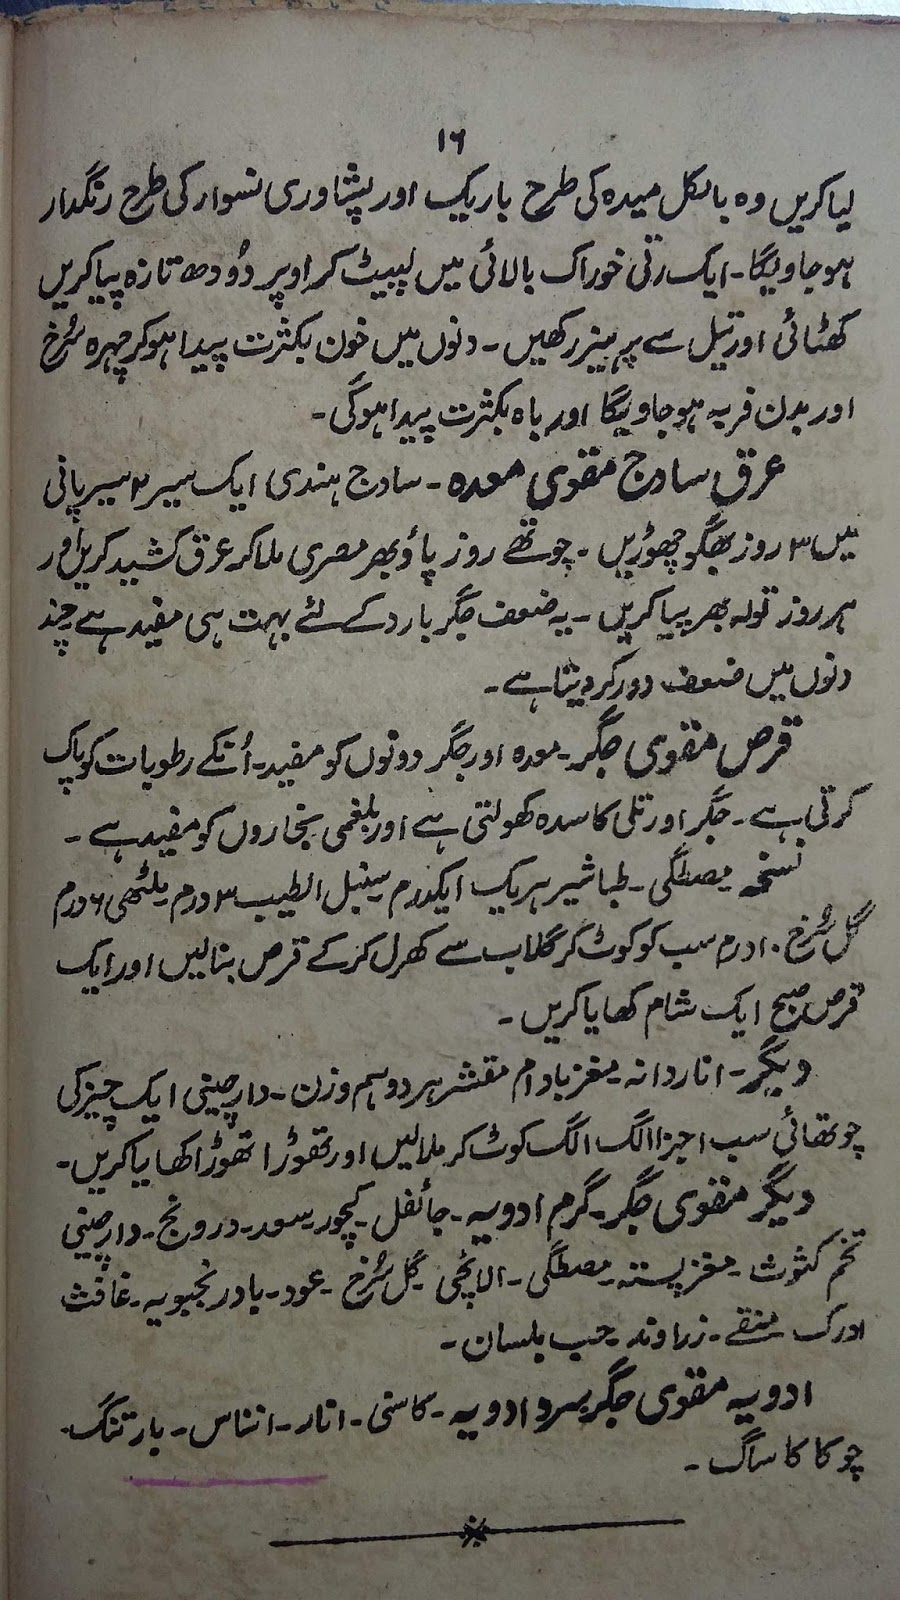 ۱۶
لیا کریں وہ بالکل میدہ کی طرح باریک اور پشاوری نسوار کی طرح رنگدار
ہو جاویگا۔ ایک رتی خوراک بالائی میں لپیٹ کر اوپر دُودھ تازہ پیا کریں
کھٹائی اور تیل سے پرہیز رکھیں۔ دنوں میں خون بکثرت پیدا ہو کر چہرہ سُرخ
اور بدن فربہ ہو جاویگا اور باہ بکثرت پیدا ہوگی۔
عرق سادج مقوی معدہ۔ سادج ہندی ایک سیر ۳ سیر پانی
میں ۳ روز بھگو چھوڑیں۔ چوتھے روز پاؤ بھر مصری ملا کر عرق کشید کریں اور
ہر روز تولہ بھر پیا کریں۔ یہ ضعف جگر بارد کے لئے بہت ہی مفید ہے چند
دنوں میں ضعف دور کر دیتا ہے۔
قرص مقوی جگر۔ معدہ اور جگر دونوں کو مفید۔ اُنکے رطوبات کو پاک
کرتی ہے۔ جگر اور تلی کا سدہ کھولتی ہے اور بلغمی بخاروں کو مفید ہے۔
نسخہ مصطگی۔ طباشیر ہر یک ایکدرم سنبل الطیب ۳ درم ملٹھی ۶ درم
گل سُرخ ۱۰ درم سب کو کوٹ کر گلاب سے کھرل کر کے قرص بنا لیں اور ایک
قرص صبح ایک شام کھایا کریں۔
دیگر۔ اناردانہ۔ مغز بادام مقشر ہر دو ہم وزن۔ دارچینی ایک چیز کی
چوتھائی سب اجزا الگ الگ کوٹ کر ملا لیں اور تھوڑا تھوڑا کھایا کریں۔
دیگر مقوی جگر۔ گرم ادویہ۔ جائفل۔ کچور۔ سعد۔ درونج۔ دارچینی
تخم کثوث۔ مغز پستہ۔ مصطگی۔ الائچی گل سُرخ۔ عود۔ بادرنجبویہ۔ غافث
ادرک منقے۔ زراوند۔ حب بلسان۔
ادویہ مقوی جگر سرد ادویہ۔ کاسنی۔ انار۔ انناس۔ بارتنگ۔
چوکا کا ساگ۔